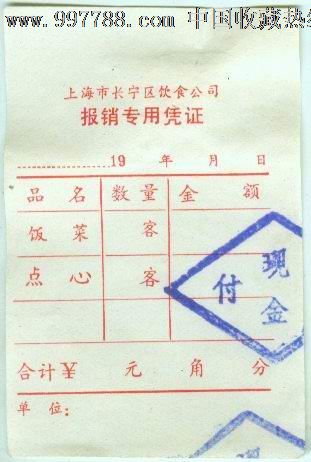 www.997788.com 中国收藏热线
上海市长宁区饮食公司
报销专用凭证
19 年 月 日
品名 数量 金额
饭菜 客
点心 客
现金
付
合计￥ 元 角 分
单位：
现